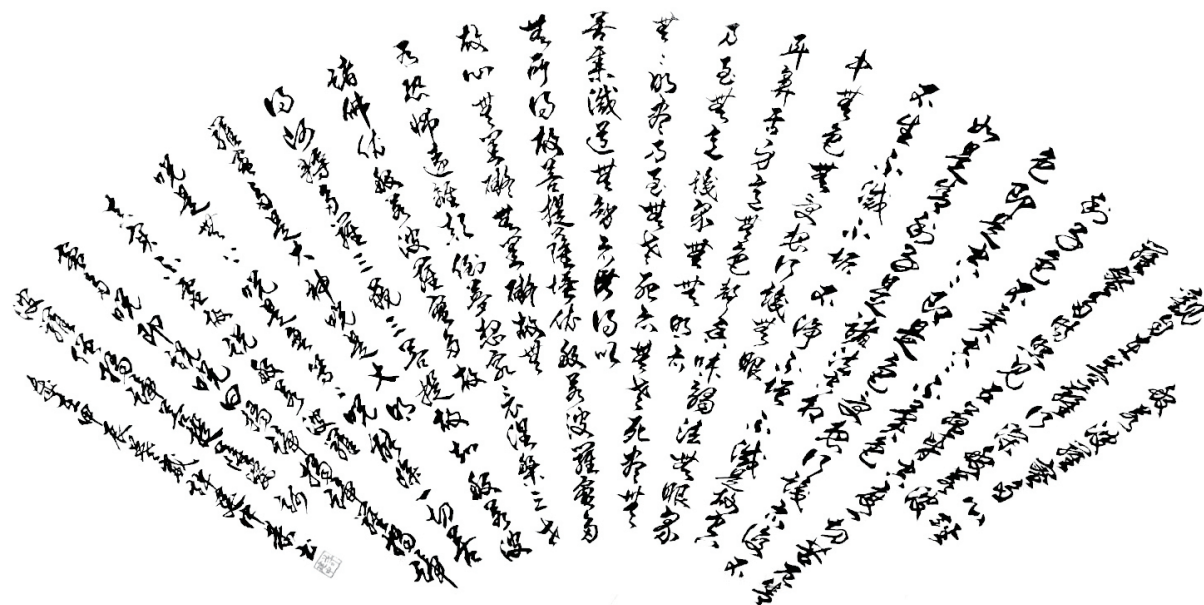 般若波羅蜜多心經
觀自在菩薩行深般若波
羅蜜多時照見五蘊皆空度一切苦厄舍
利子色不異空空不異色
色即是空空即是色受想行識亦復
如是舍利子是諸法空相
不生不滅不垢不淨不增不減是故空
中無色無受想行識無眼
耳鼻舌身意無色聲香味觸法無眼界
乃至無意識界無無明亦
無無明盡乃至無老死亦無老死盡無
苦集滅道無智亦無得以
無所得故菩提薩埵依般若波羅蜜多
故心無罣礙無罣礙故無
有恐怖遠離顛倒夢想究竟涅槃三世
諸佛依般若波羅蜜多故
得阿耨多羅三藐三菩提故知般若波
羅蜜多是大神呪是大明
呪是無上呪是無等等呪能除一切苦
真實不虛故說般若波羅
蜜多呪即說呪曰揭諦揭諦波羅揭諦
波羅僧揭諦菩提薩婆訶